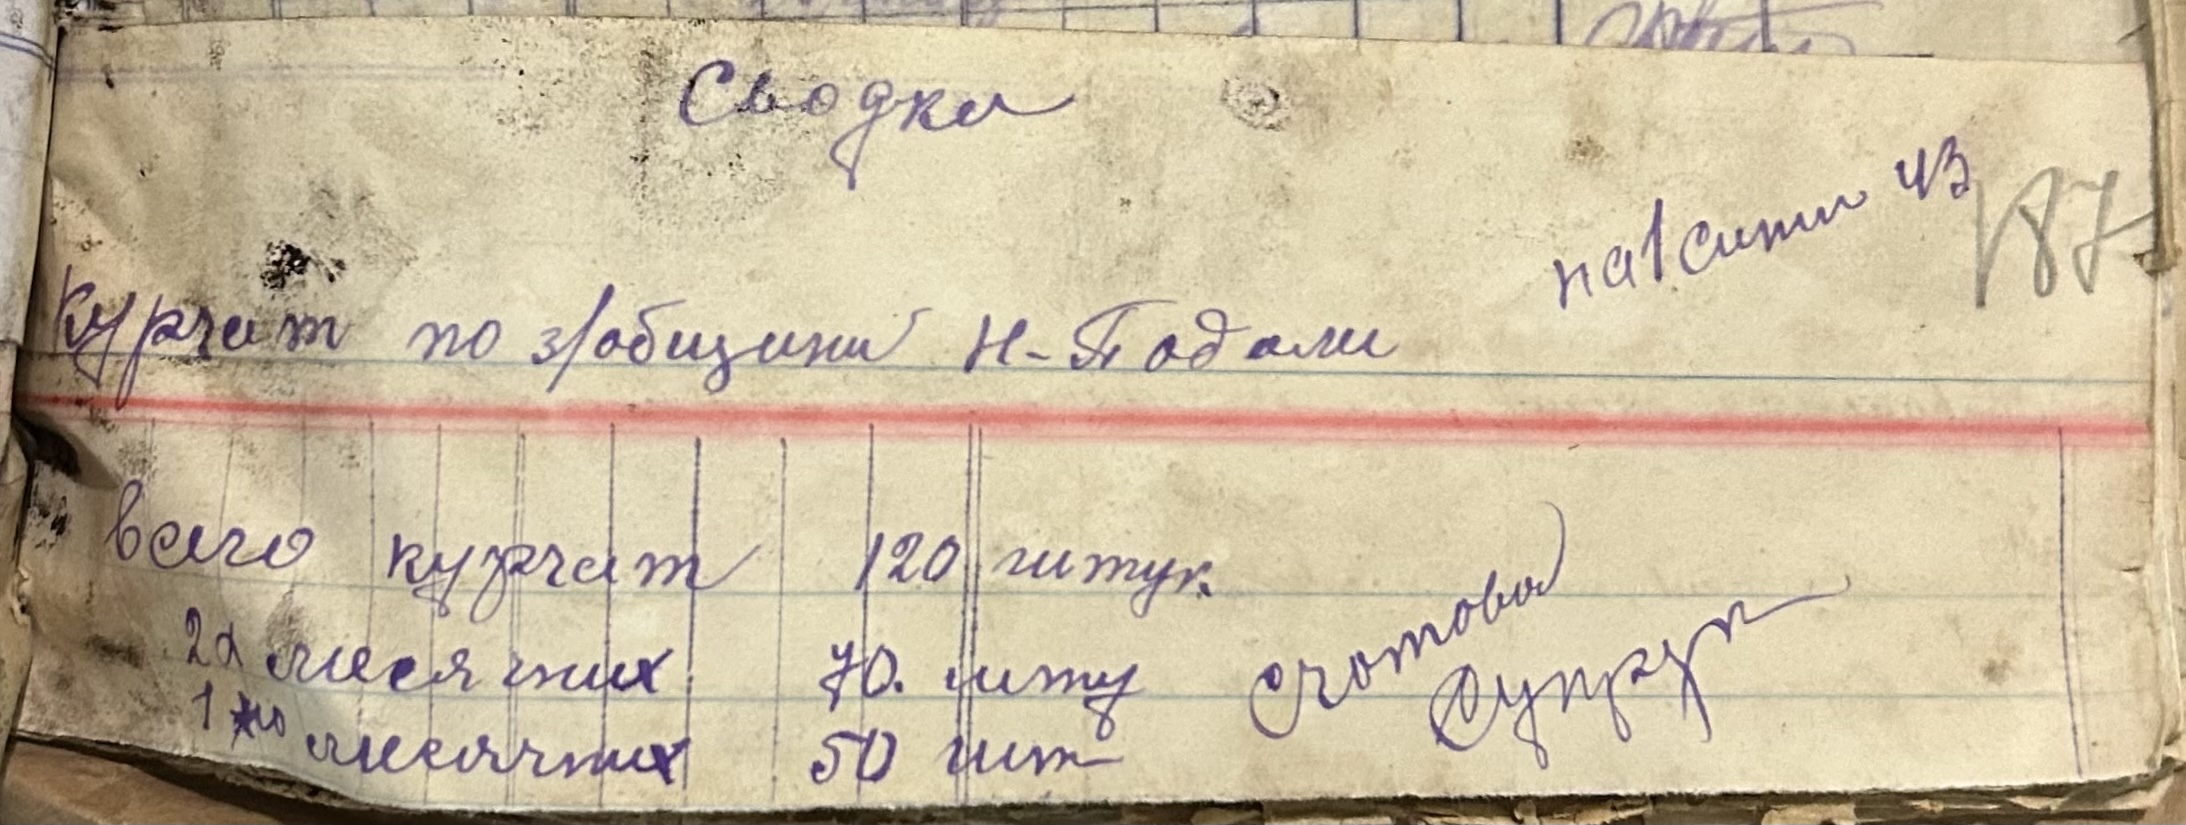 Сводка
на 1 ситт 43
187
Курчат по з/общини Н-Подоли
Всего курчат 120 штук.
2х месячних 70. шту
1но месячних 50 шт
Счотовод
Супрун